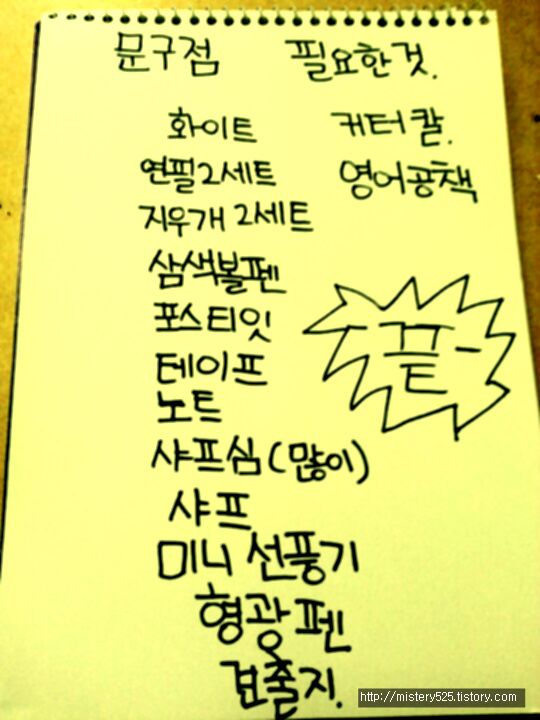 문구점 필요한것.
화이트
연필2세트
지우개 2세트
삼색볼펜
포스티잇
테이프
노트
샤프심(많이)
샤프
미니 선풍기
형광펜
견출지.
커터칼.
영어공책
-끝-
http://mistery525.tistory.com